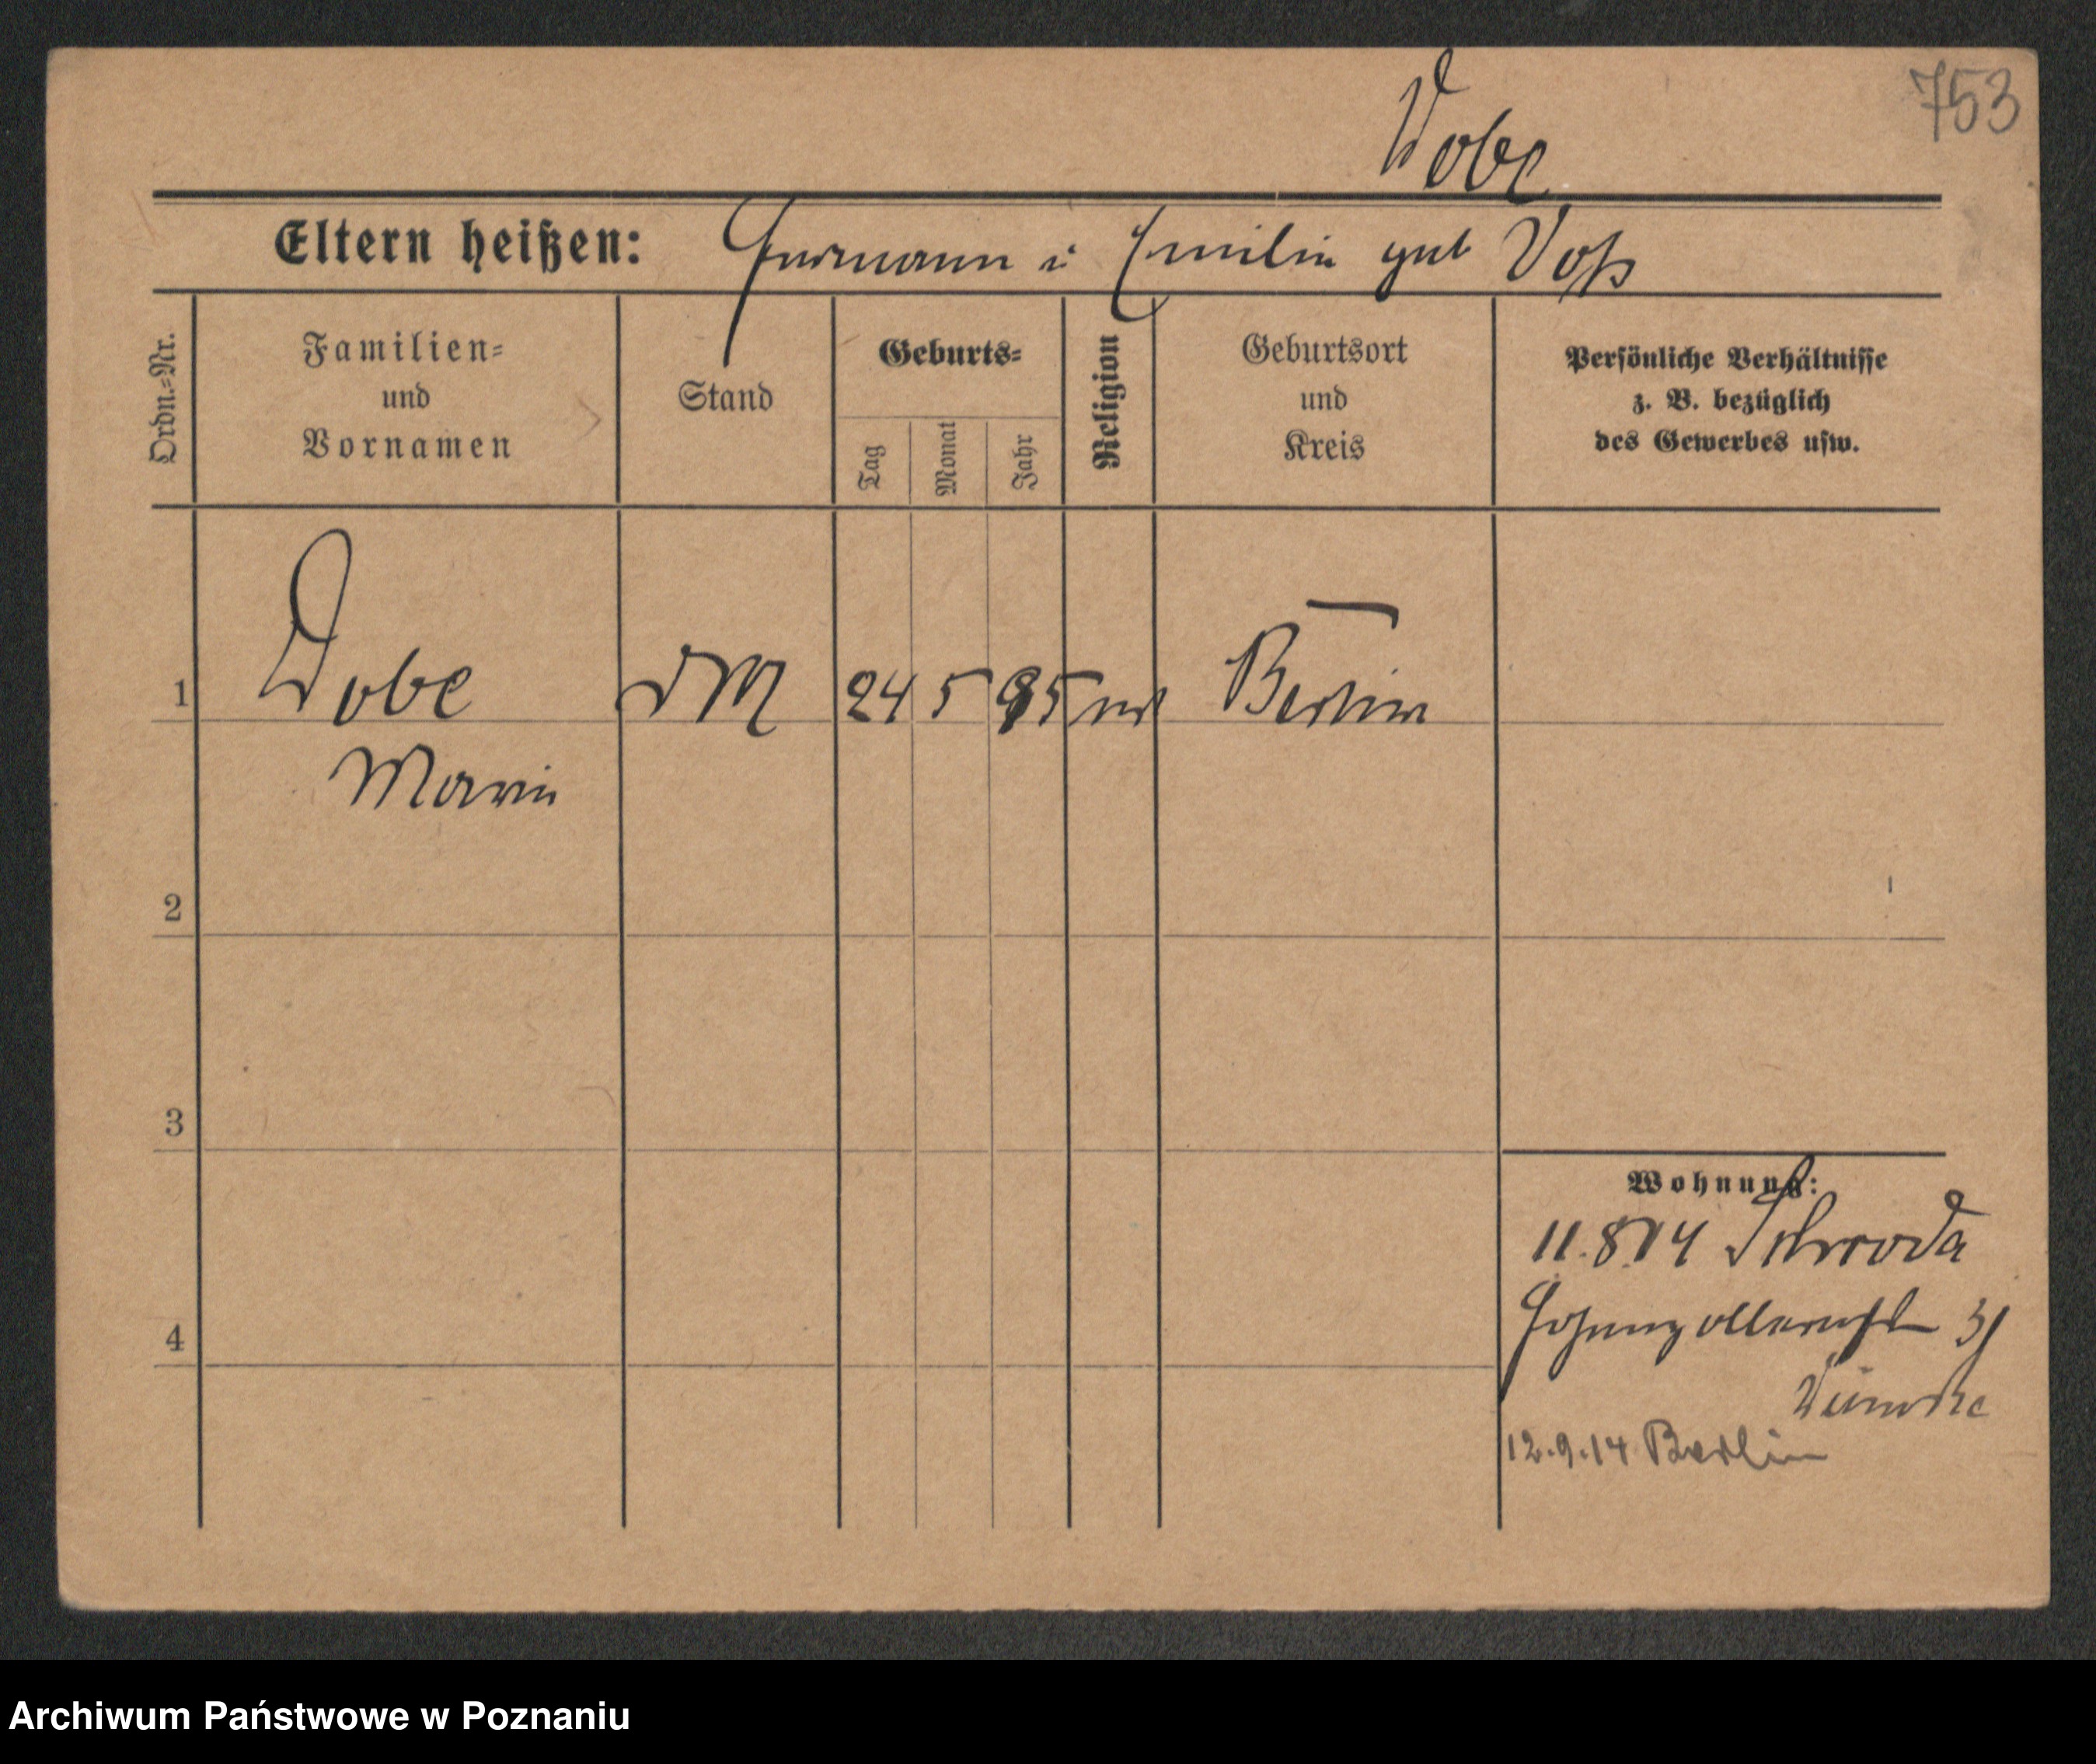 753
Dobe
Eltern heißen: Hermann u Emilie geb Voß
Ordn.-Nr.
Familien-
und
Vornamen
Stand
Geburts-
Tag
Monat
Jahr
Religion
Geburtsort
und
Kreis
Persönliche Verhältnisse
z. B. bezüglich
des Gewerbes usw.
1 Dobe DM 24 5 95 Berlin
Marie
2
3
4
Wohnung:
11.8.14 Schroda
Hohenzollernstr 31
12.9.14 Berlin
Archiwum Państwowe w Poznaniu